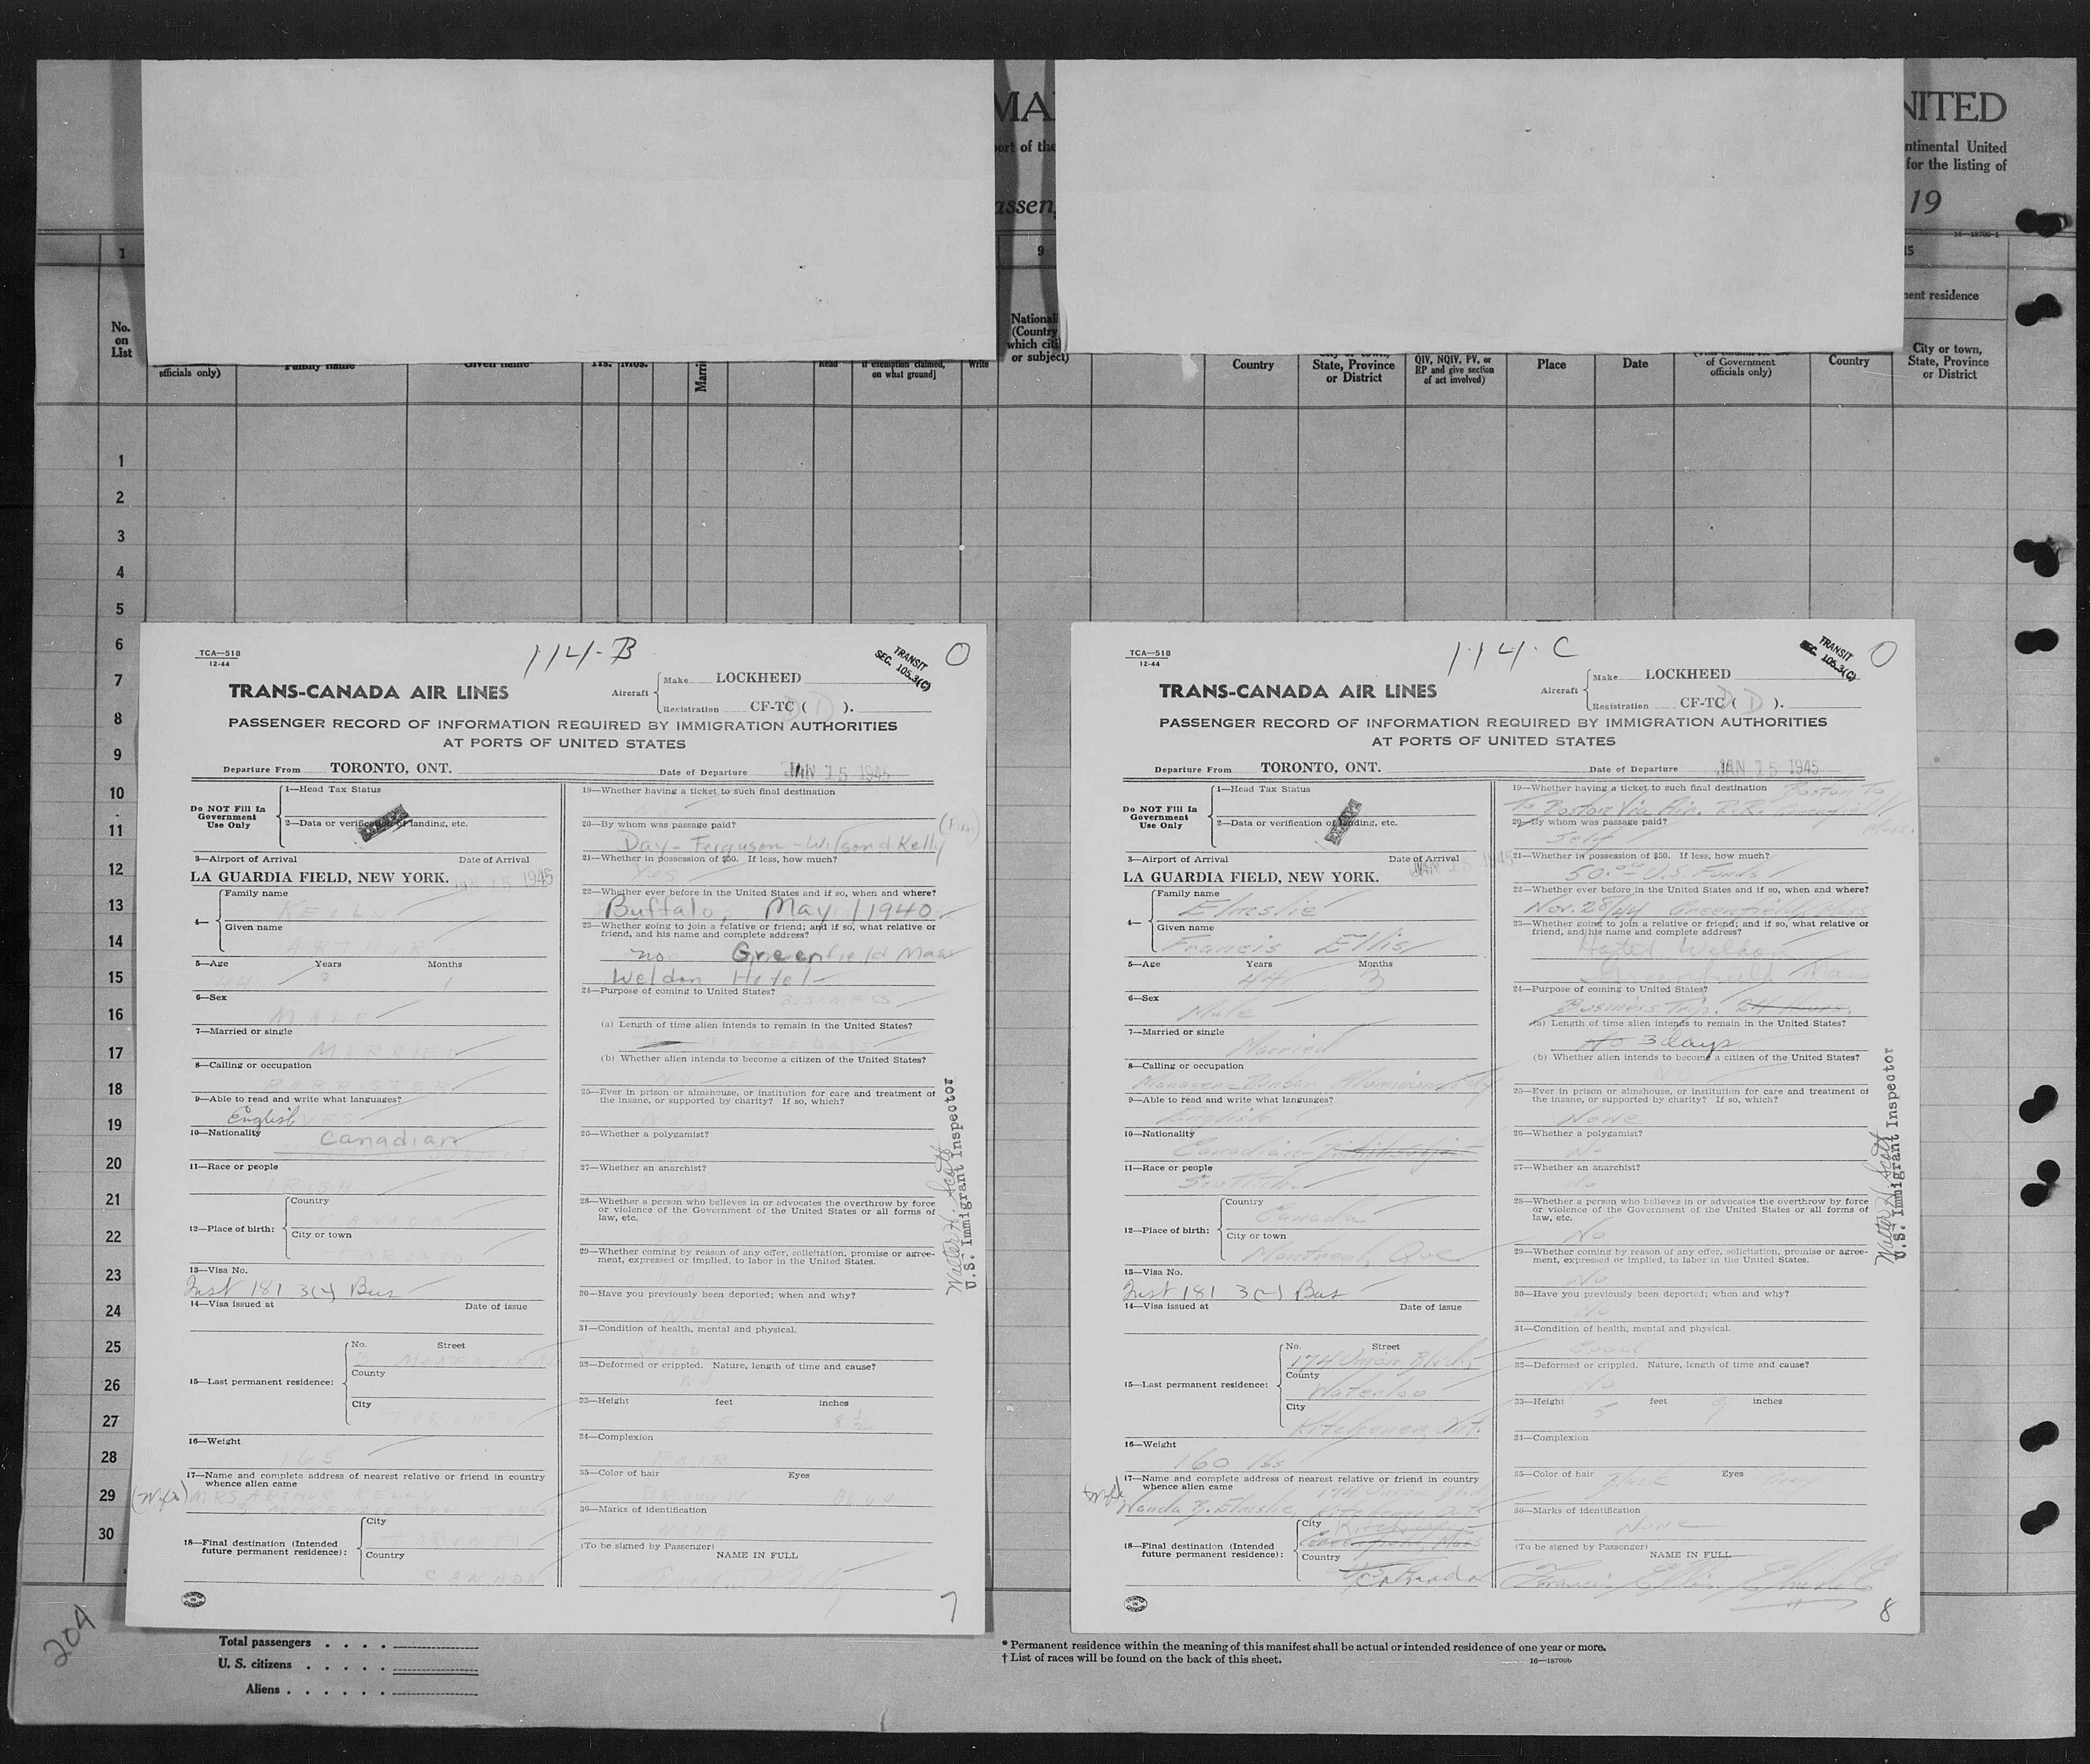 MA
NITED
ort of the
ntinental United
for the listing of
assen
19
16—18709-1
1
9
15
No.
on
List
National
(Country
which citi
or subject)
ent residence
officials only)
Family name
Given name
Yrs.
Mos.
Marri
Read
if exemption claimed,
on what ground]
Write
Country
State, Province
or District
QIV, NQIV, PV, or
RP and give section
of act involved)
Place
Date
of Government
officials only)
Country
City or town,
State, Province
or District
1
2
3
4
5
6
7
8
9
10
11
12
13
14
15
16
17
18
19
20
21
22
23
24
25
26
27
28
29
30
TCA—518
12-44
114-B
TRANSIT
SEC. 105.3(C)
O
TRANS-CANADA AIR LINES
Aircraft
Make LOCKHEED
Registration CF-TC ( ).
PASSENGER RECORD OF INFORMATION REQUIRED BY IMMIGRATION AUTHORITIES
AT PORTS OF UNITED STATES
Departure From TORONTO, ONT.
Date of Departure JAN 15 1945
Do NOT Fill In
Government
Use Only
1—Head Tax Status
2—Data or verification of landing, etc.
3—Airport of Arrival Date of Arrival
LA GUARDIA FIELD, NEW YORK. JAN 15 1945
4—
Family name
KELLY
Given name
ARTHUR
5—Age Years Months
44 1
6—Sex
MALE
7—Married or single
MARRIED
8—Calling or occupation
BARRISTER
9—Able to read and write what languages?
English
10—Nationality
Canadian
11—Race or people
IRISH
12—Place of birth:
Country
CANADA
City or town
TORONTO
13—Visa No.
Inst 181 3(2) Bus
14—Visa issued at Date of issue
15—Last permanent residence:
No. Street
County
City
TORONTO
16—Weight
17—Name and complete address of nearest relative or friend in country
whence alien came
(Wife) MRS ARTHUR KELLY
18—Final destination (Intended
future permanent residence):
City
TORONTO
Country
CANADA
19—Whether having a ticket to such final destination
20—By whom was passage paid?
Day-Ferguson-Wilson & Kelly (Firm)
21—Whether in possession of $50. If less, how much?
Yes
22—Whether ever before in the United States and if so, when and where?
Buffalo, May 1940.
23—Whether going to join a relative or friend; and if so, what relative or
friend, and his name and complete address?
no Greenfield Mass
Weldon Hotel
24—Purpose of coming to United States?
BUSINESS
(a) Length of time alien intends to remain in the United States?
THREE DAYS
(b) Whether alien intends to become a citizen of the United States?
25—Ever in prison or almshouse, or institution for care and treatment of
the insane, or supported by charity? If so, which?
26—Whether a polygamist?
27—Whether an anarchist?
28—Whether a person who believes in or advocates the overthrow by force
or violence of the Government of the United States or all forms of
law, etc.
29—Whether coming by reason of any offer, solicitation, promise or agree-
ment, expressed or implied, to labor in the United States.
30—Have you previously been deported; when and why?
31—Condition of health, mental and physical.
Good
32—Deformed or crippled. Nature, length of time and cause?
33—Height feet inches
5 8½
34—Complexion
FAIR
35—Color of hair Eyes
BROWN Blue
36—Marks of identification
(To be signed by Passenger)
NAME IN FULL
7
Walter H. Scott
U.S. Immigrant Inspector
TCA—518
12-44
114-C
TRANSIT
SEC. 105.3(C)
O
TRANS-CANADA AIR LINES
Aircraft
Make LOCKHEED
Registration CF-TC ( D ).
PASSENGER RECORD OF INFORMATION REQUIRED BY IMMIGRATION AUTHORITIES
AT PORTS OF UNITED STATES
Departure From TORONTO, ONT.
Date of Departure JAN 15 1945
Do NOT Fill In
Government
Use Only
1—Head Tax Status
2—Data or verification of landing, etc.
3—Airport of Arrival Date of Arrival
LA GUARDIA FIELD, NEW YORK. JAN 15 1945
4—
Family name
Elmslie
Given name
Francis Ellis
5—Age Years Months
44 3
6—Sex
Male
7—Married or single
Married
8—Calling or occupation
Manager
9—Able to read and write what languages?
English
10—Nationality
Canadian
11—Race or people
Scottish
12—Place of birth:
Country
Canada
City or town
Montreal, Que
13—Visa No.
Inst 181 3(2) Bus
14—Visa issued at Date of issue
15—Last permanent residence:
No. Street
174 Union Blvd,
County
Waterloo
City
Kitchener, Ont.
16—Weight
160 lbs
17—Name and complete address of nearest relative or friend in country
whence alien came 174 Union Blvd
Wife Wanda B. Elmslie, Kitchener Ont
18—Final destination (Intended
future permanent residence):
City Kitchener
Greenfield, Mass
Country
Canada
19—Whether having a ticket to such final destination Boston To
To Boston Via Air. R.R. Greenfield, Mass.
20—By whom was passage paid?
Self
21—Whether in possession of $50. If less, how much?
50.00 U.S. Funds
22—Whether ever before in the United States and if so, when and where?
Nov. 28/44 Greenfield, Mass
23—Whether going to join a relative or friend; and if so, what relative or
friend, and his name and complete address?
Hotel Weldon
Greenfield Mass
24—Purpose of coming to United States?
Business Trip. 24 hours.
(a) Length of time alien intends to remain in the United States?
No 3 days
(b) Whether alien intends to become a citizen of the United States?
No
25—Ever in prison or almshouse, or institution for care and treatment of
the insane, or supported by charity? If so, which?
None
26—Whether a polygamist?
No
27—Whether an anarchist?
No
28—Whether a person who believes in or advocates the overthrow by force
or violence of the Government of the United States or all forms of
law, etc.
No
29—Whether coming by reason of any offer, solicitation, promise or agree-
ment, expressed or implied, to labor in the United States.
No
30—Have you previously been deported; when and why?
No
31—Condition of health, mental and physical.
Good
32—Deformed or crippled. Nature, length of time and cause?
No
33—Height feet inches
5 9
34—Complexion
35—Color of hair Eyes
Black
36—Marks of identification
None
(To be signed by Passenger)
NAME IN FULL
Francis Ellis Elmslie
8
Walter H. Scott
U.S. Immigrant Inspector
204
Total passengers
U. S. citizens
Aliens
* Permanent residence within the meaning of this manifest shall be actual or intended residence of one year or more.
† List of races will be found on the back of this sheet.
16—18709b